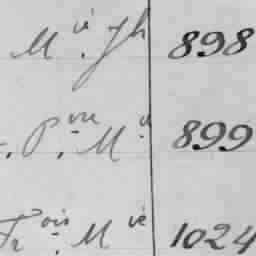 Mie. Jh 898
. Pre. Ma 899
Frois. Mie 1024